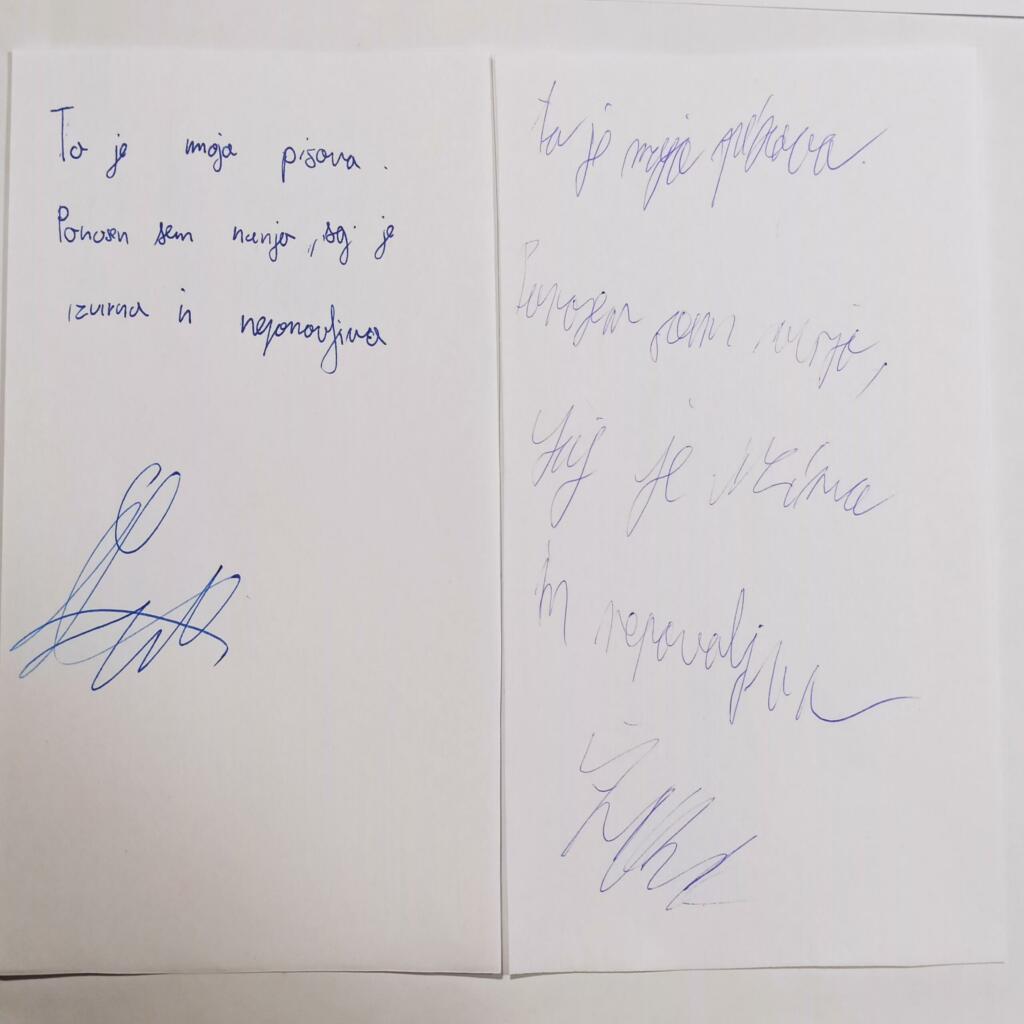 To je moja pisava.
Ponosen sem nanjo, saj je
izvirna in neponovljiva
ta je moja pisava.
Ponosen sem nanjo,
saj je
in nepovaljiva